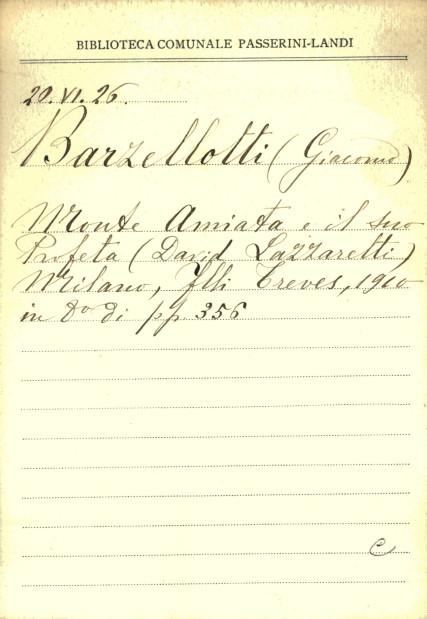 BIBLIOTECA COMUNALE PASSERINI-LANDI
20.VI.26.
Barzellotti (Giacomo)
Monte Amiata e il suo
Profeta (David Lazzaretti)
Milano, Flli Treves, 1910
in 8º di pp. 356
C